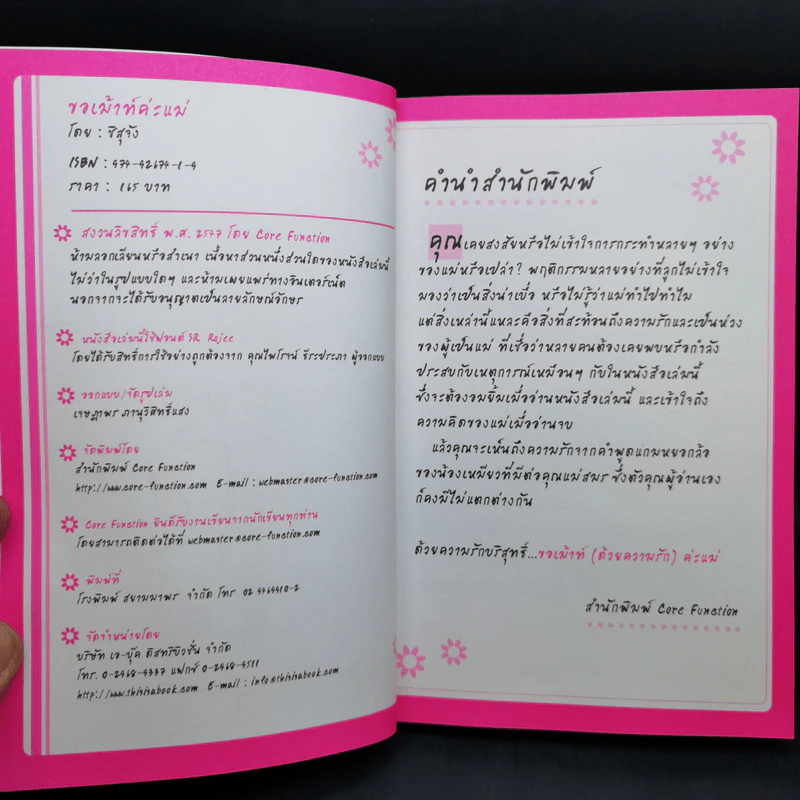 ขอเม้าท์ค่ะแม่
โดย : ชิสุจัง
ISBN : 974-92674-1-9
ราคา : 165 บาท
สงวนลิขสิทธิ์ พ.ศ. 2547 โดย Core Function
ห้ามลอกเลียนหรือสำเนา เนื้อหาส่วนหนึ่งส่วนใดของหนังสือเล่มนี้
ไม่ว่าในรูปแบบใดๆ และห้ามเผยแพร่ทางอินเตอร์เน็ต
นอกจากจะได้รับอนุญาตเป็นลายลักษณ์อักษร
หนังสือเล่มนี้ใช้ฟอนต์ SR Rajee
โดยได้รับสิทธิ์การใช้อย่างถูกต้องจาก คุณไพโรจน์ ธีระประภา ผู้ออกแบบ
ออกแบบ/จัดรูปเล่ม
เจษฎาพร ภานุวิสิทธิ์แสง
จัดพิมพ์โดย
สำนักพิมพ์ Core Function
http://www.core-function.com E-mail : webmaster@core-function.com
Core Function ยินดีรับงานเขียนจากนักเขียนทุกท่าน
โดยสามารถติดต่อได้ที่ webmaster@core-function.com
พิมพ์ที่
โรงพิมพ์ สยามมาพร จำกัด โทร
จัดจำหน่ายโดย
บริษัท เอ-บุ๊ค ดิสทริบิวชั่น จำกัด
โทร. 0-2968-9337 แฟกซ์ 0-2968-9511
http://www.thisisabook.com E-mail : info@thisisabook.com
คำนำสำนักพิมพ์
คุณเคยสงสัยหรือไม่เข้าใจการกระทำหลายๆ อย่าง
ของแม่หรือเปล่า? พฤติกรรมหลายอย่างที่ลูกไม่เข้าใจ
มองว่าเป็นสิ่งน่าเบื่อ หรือไม่รู้ว่าแม่ทำไปทำไม
แต่สิ่งเหล่านี้แหละคือสิ่งที่สะท้อนถึงความรักและเป็นห่วง
ของผู้เป็นแม่ ที่เชื่อว่าหลายคนต้องเคยพบหรือกำลัง
ประสบกับเหตุการณ์เหมือนๆ กับในหนังสือเล่มนี้
ซึ่งจะต้องอมยิ้มเมื่ออ่านหนังสือเล่มนี้ และเข้าใจถึง
ความคิดของแม่เมื่ออ่านจบ
แล้วคุณจะเห็นถึงความรักจากคำพูดแกมหยอกล้อ
ของน้องเหมียวที่มีต่อคุณแม่สมร ซึ่งตัวคุณผู้อ่านเอง
ก็คงมีไม่แตกต่างกัน
ด้วยความรักบริสุทธิ์...ขอเม้าท์ (ด้วยความรัก) ค่ะแม่
สำนักพิมพ์ Core Function